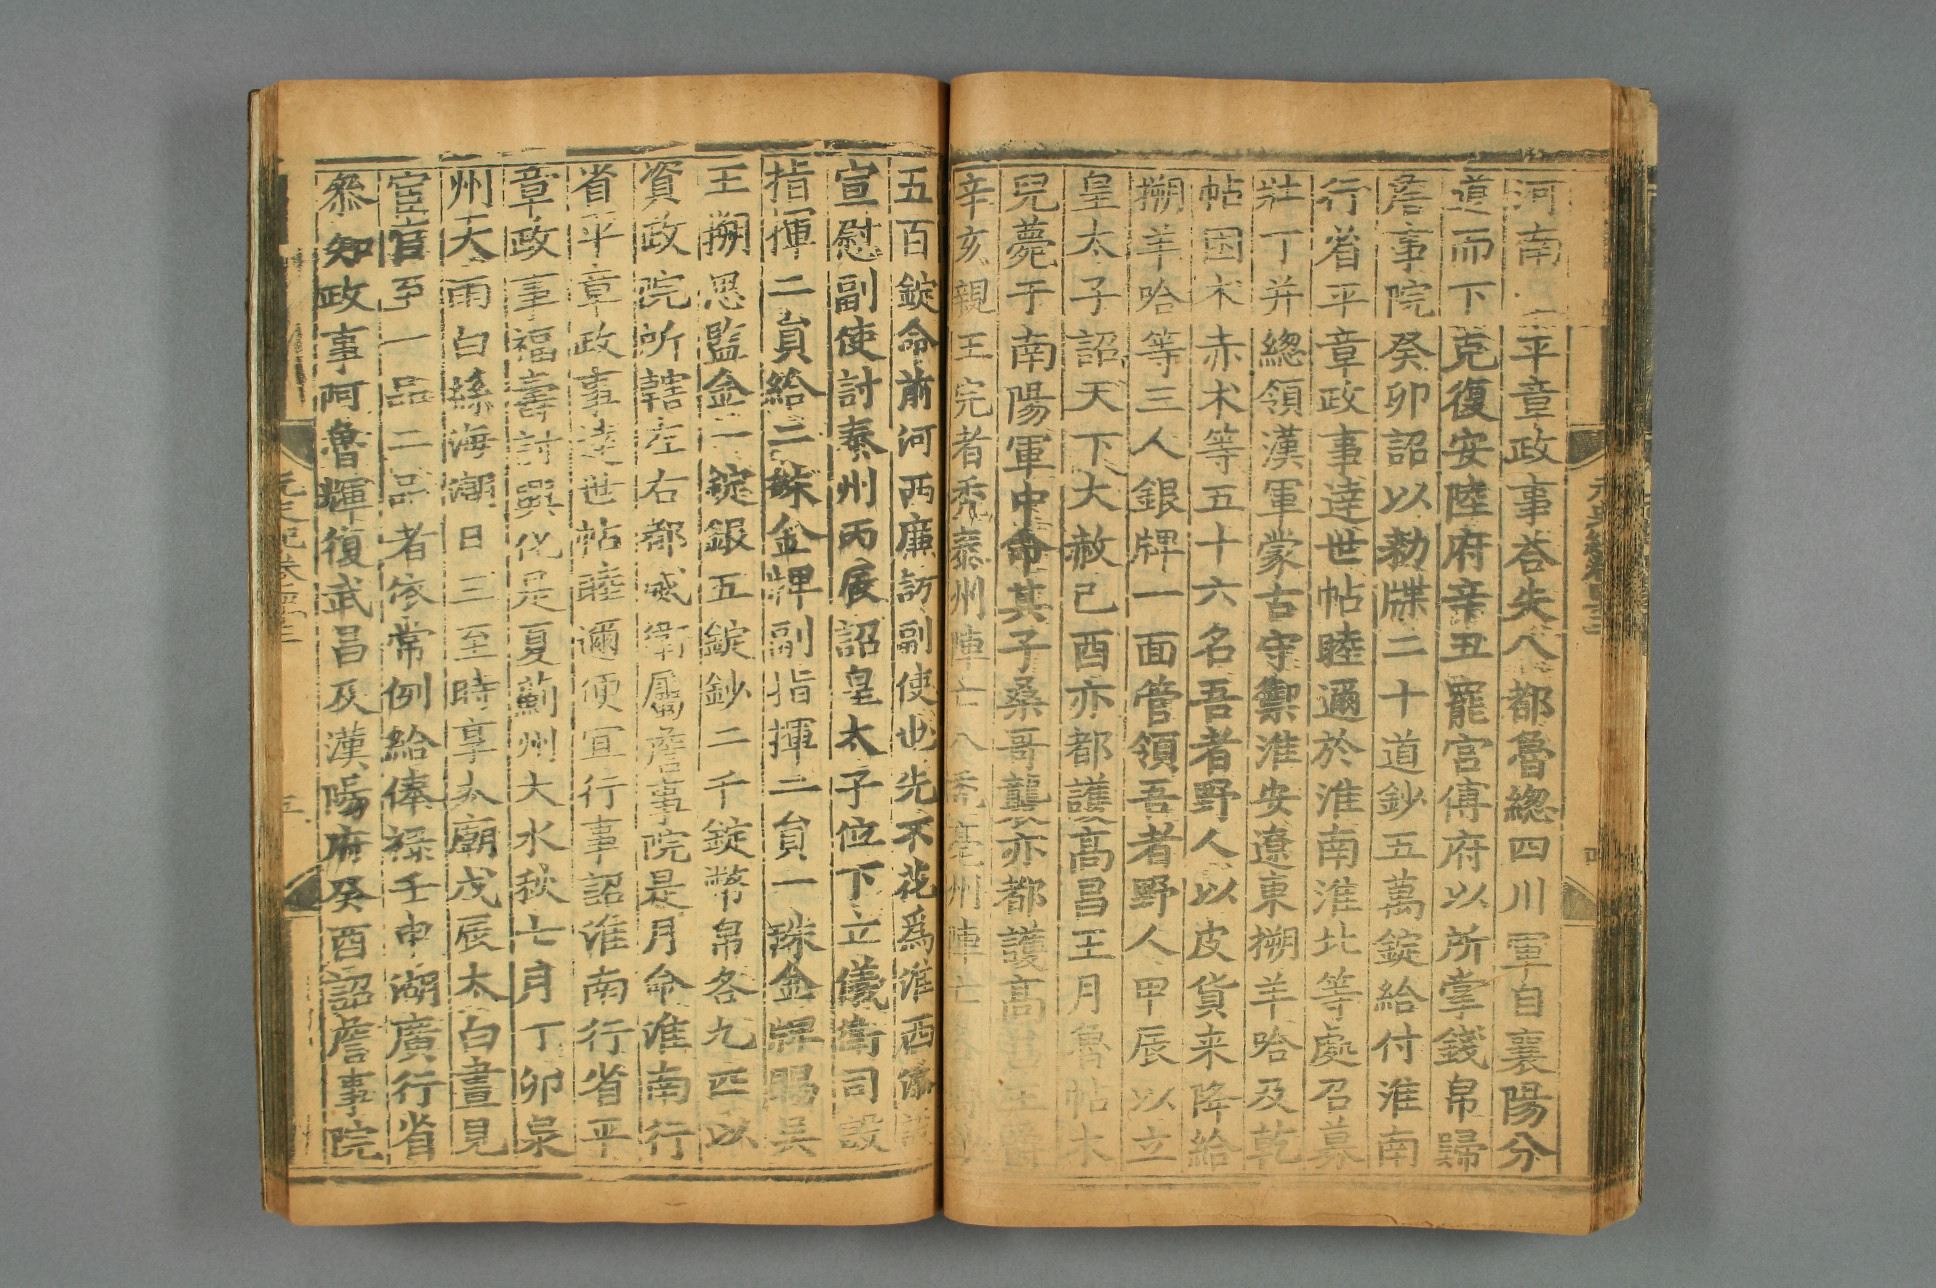 河南 平章政事荅失八都魯緫四川軍自襄陽分
道而下克復安陸府辛丑罷宫傅府以所掌錢帛歸
詹事院癸卯詔以勑牒二十道鈔五萬錠給付淮南
行省平章政事逹世帖睦邇於淮南淮北等處召募
壯丁并緫領漢軍蒙古守禦淮安遼東搠羊哈及乾
帖困木赤木等五十六名吾者野人以皮貨来降給
搠羊哈等三人銀牌一面管領吾者野人甲辰以立
皇太子詔天下大赦己酉亦都護髙昌王月魯帖木
兒薨于南陽軍中命其子桑哥襲亦都護髙昌王爵
辛亥親王完者禿泰州陣亡八禿亳州陣亡各
五百錠命前河西廉訪副使也先不花爲淮西
宣慰副使討泰州丙辰詔皇太子位下立儀衛司設
指揮二貟給二珠金牌副指揮二貟一珠金牌賜吴
王搠思監金一錠銀五錠鈔二千錠幣帛各九匹以
資政院所轄左右都威衛屬詹事院是月命淮南行
省平章政事逹世帖睦邇便宜行事詔淮南行省平
章政事福壽討興化是夏薊州大水秋七月丁卯泉
州天雨白絲海潮日三至時享太廟戊辰太白晝見
宦官至一品二品者依常例給俸禄壬申湖廣行省
叅知政事阿魯輝復武昌及漢陽府癸酉詔詹事院
元史紀卷四十三